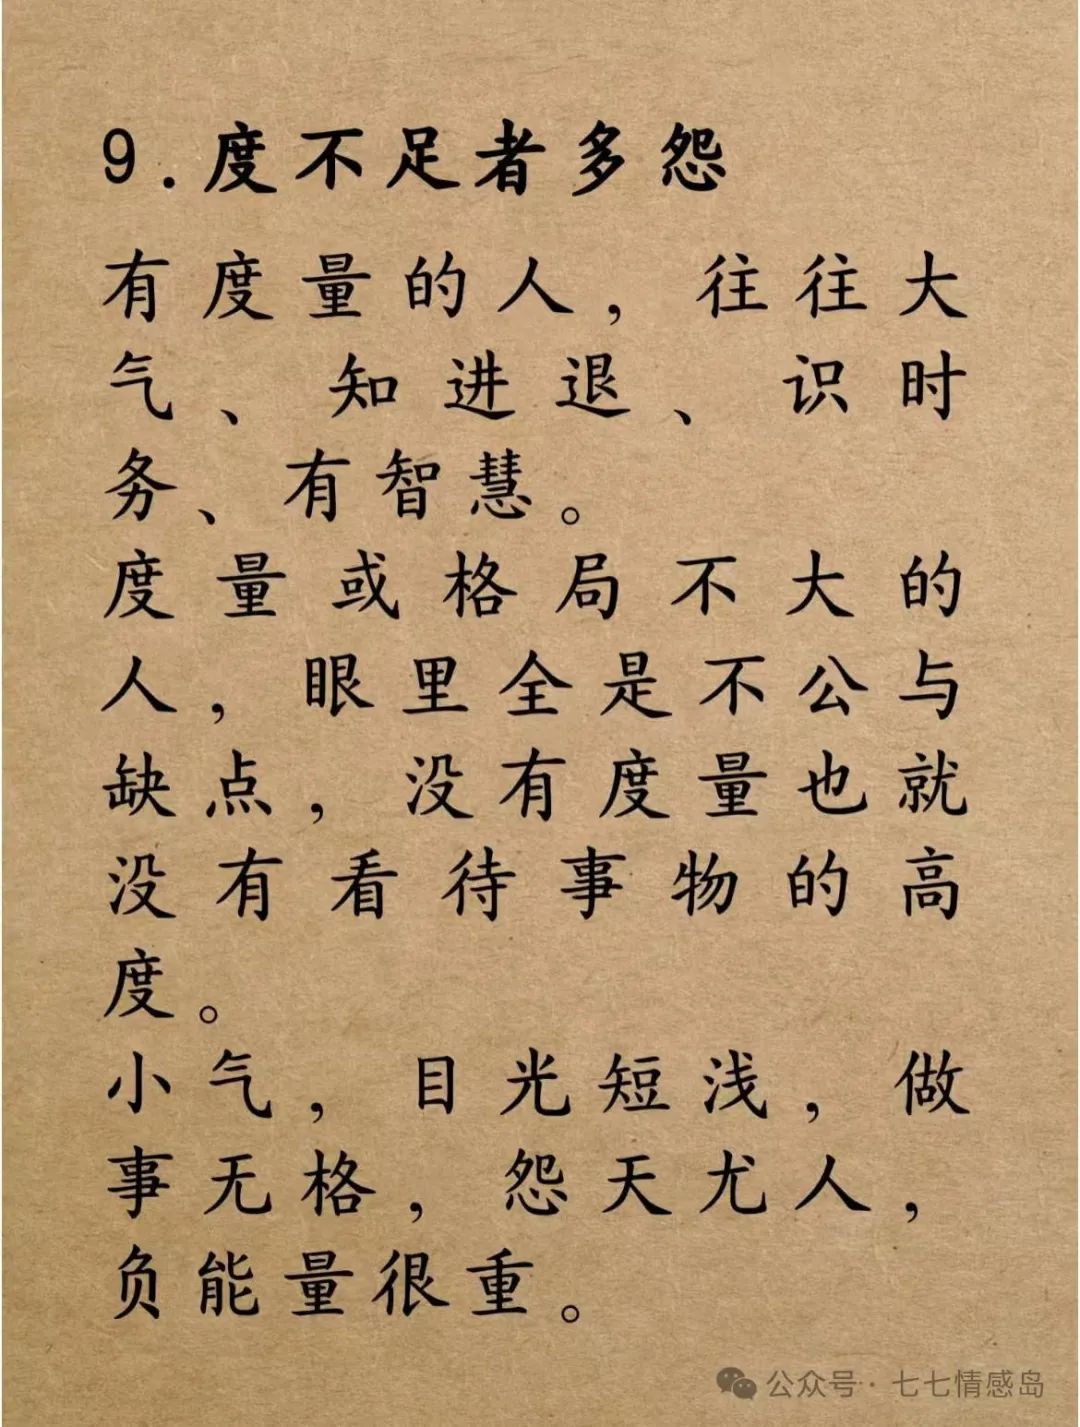 9.度不足者多怨
有度量的人，往往大
气、知进退、识时
务、有智慧。
度量或格局不大的
人，眼里全是不公与
缺点，没有度量也就
没有看待事物的高
度。
小气，目光短浅，做
事无格，怨天尤人，
负能量很重。
公众号·七七情感岛